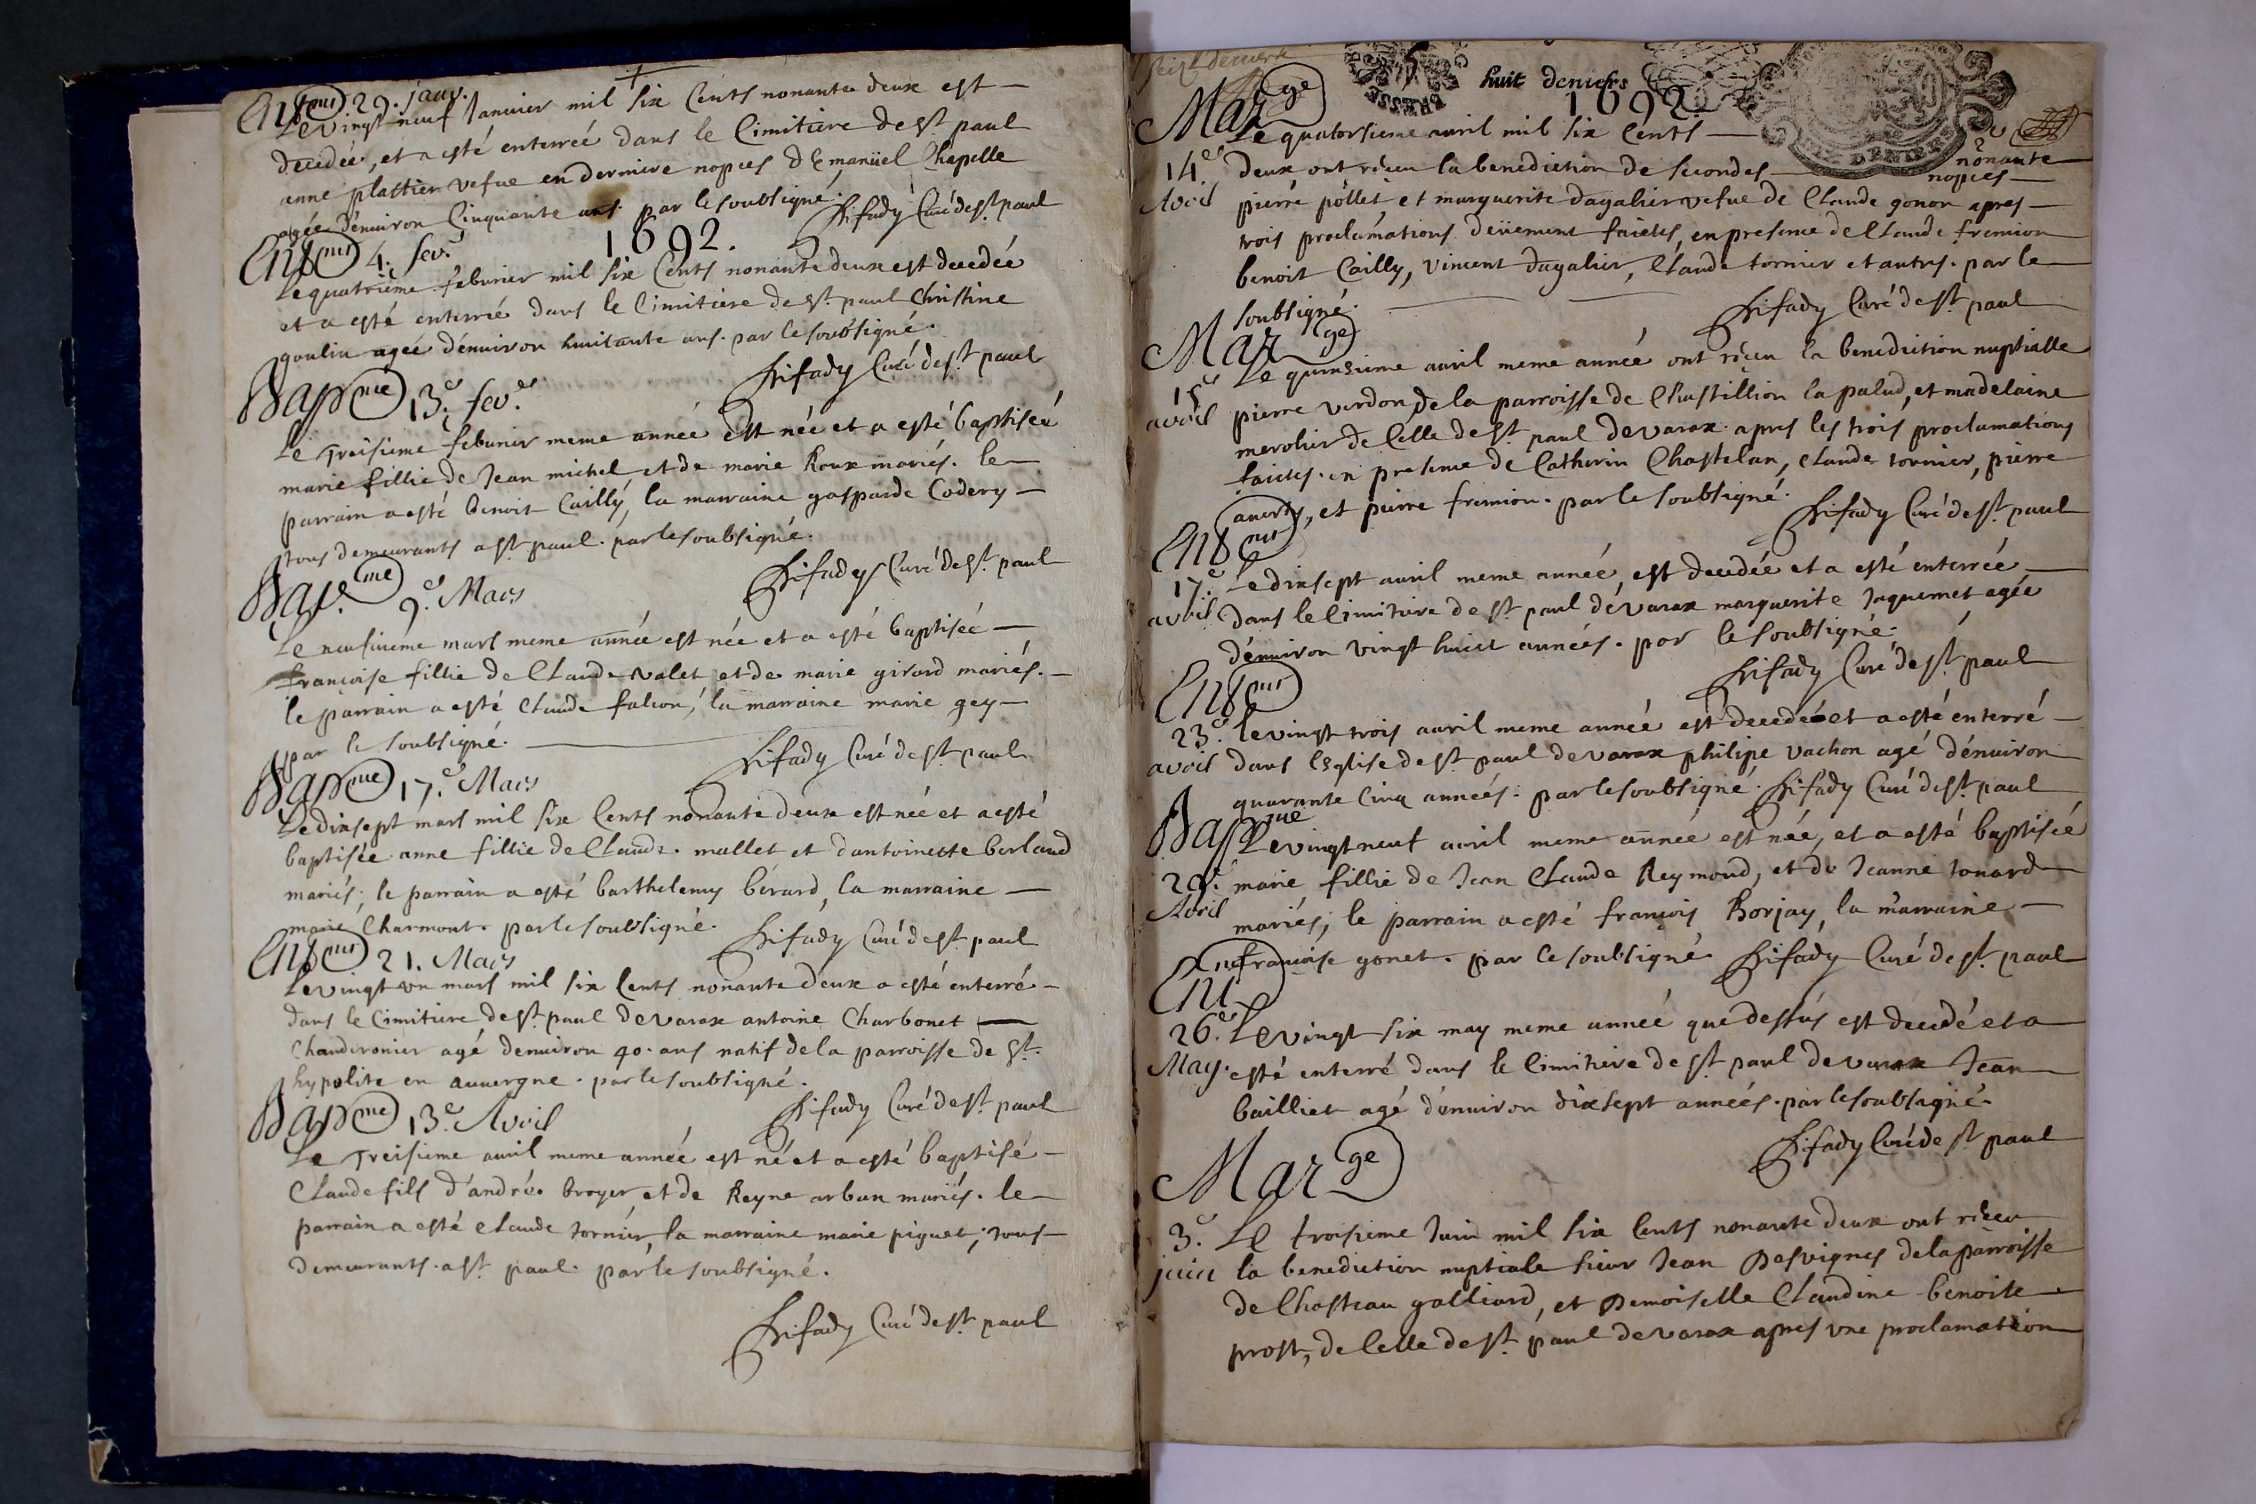 Ent.mt 29. janv.
Le vingt neuf Janvier mil six Cents nonante deux est —
decedée, et a esté enterrée dans le Cimitiere de St. paul
anne plattier vefue en derniere nopces d'Emanüel Chapelle
agée d'enuiron Cinquante ans. par le soubsigné.
Sifady Curé de St. paul
1692.
Ent.mt 4. fev.
Le quatrieme feburier mil six Cents nonante deux est decedée
et a esté enterrée dans le Cimitiere de St. paul Christine
goulin agée d'enuiron huitante ans. par le soubsigné.
Sifady Curé de St. paul
Bap.me 13.e fev.er
Le Treisieme feburier meme année est née et a esté baptiseé
marie fillie de Jean michel, et de marie Roux mariés. le
parrain a esté benoit Cailly, la marraine gasparde Codery —
tous demeurants a St. paul. par le soubsigné.
Sifady Curé de St. paul
Bap.me 9.e Mars
Le neufuieme mars meme année est née et a esté baptisée —
françoise fillie de Claude valet et de marie girard mariés. —
le parrain a esté Claude falcon, la marraine marie gey —
par le soubsigné.
Sifady Curé de St. paul
Bap.me 17.e Mars
Le dixsept mars mil six Cents nonante deux est née et a esté
baptisée anne fillie de Claude mallet et d'antoinette berlaud
mariés; le parrain a esté barthelemy bérard, la marraine —
marie Charmont. par le soubsigné.
Sifady Curé de St. paul
Ent.mt 21. Mars
Le vingt un mars mil six Cents nonante deux a esté enterré —
dans le Cimitiere de St. paul de varax antoine Charbonet —
Chauderonier agé d'enuiron 40. ans natif de la parroisse de St.
hypolite en auuergne. par le soubsigné.
Sifady Curé de St. paul
Bap.me 13.e Avril
Le Treisieme auril meme année est né et a esté baptisé —
Claude fils d'andré broyer et de Reyne arban mariés. le —
parrain a esté Claude tornier, la marraine marie piquet; tous —
demeurants a St. paul. par le soubsigné.
Sifady Curé de St. paul
huit deniers
1692.
Mar.ge
Le quatorsieme auril mil six Cents — nonante
14.e Avril deux ont réceu la benediction de secondes — nopces —
pierre pollet et marguerite dagalier vefue de Claude gonon apres —
trois proclamations deüement faictes, en presence de Claude fremion
benoit Cailly, vincent dagalier, Claude tornier et autres. par le —
soubsigné.
Sifady Curé de St. paul
Mar.ge
Le quinsieme auril meme année ont réceu la benediction nuptialle
15.e avril pierre verdon, de la parroisse de Chastillion la palud, et madelaine
merolier de Celle de St. paul de varax. apres les trois proclamations
faictes. en presence de Catherin Chastelan, Claude tornier, pierre
, et pierre fremion. par le soubsigné.
Sifady Curé de St. paul
Ent.mt
17.e avril Le dixsept auril meme année, est decedée et a esté enterrée —
dans le Cimitiere de St. paul de varax marguerite Jaquemet agée
d'enuiron vingt huict années. par le soubsigné.
Sifady Curé de St. paul
Ent.mt
23.e avril Le vingt trois auril meme année est decedé et a esté enterré —
dans l'Eglise de St. paul de varax philipe vachon agé d'enuiron
quarante Cinq années. par le soubsigné. Sifady Curé de St. paul
Bap.me
Le vingt neuf auril meme année est née, et a esté baptisée
29.e Avril marie fillie de Jean Claude Reymond, et de Jeanne tonard
mariés; le parrain a esté françois Borjay, la marraine —
françoise gonet. par le soubsigné. Sifady Curé de St. paul
Ent.
26.e May. Le vingt six may meme année que dessus est decedé et a
esté enterré dans le Cimitiere de St. paul de varax Jean
bailliet agé d'enuiron dixsept années. par le soubsigné.
Sifady Curé de St. paul
Mar.ge
3.e juin Le troisieme Juin mil six Cents nonante deux ont réceu
la benediction nuptiale sieur Jean Desvignes de la parroisse
de Chasteau galliard, et Demoiselle Claudine benoite
prost, de Celle de St. paul de varax apres vne proclamation